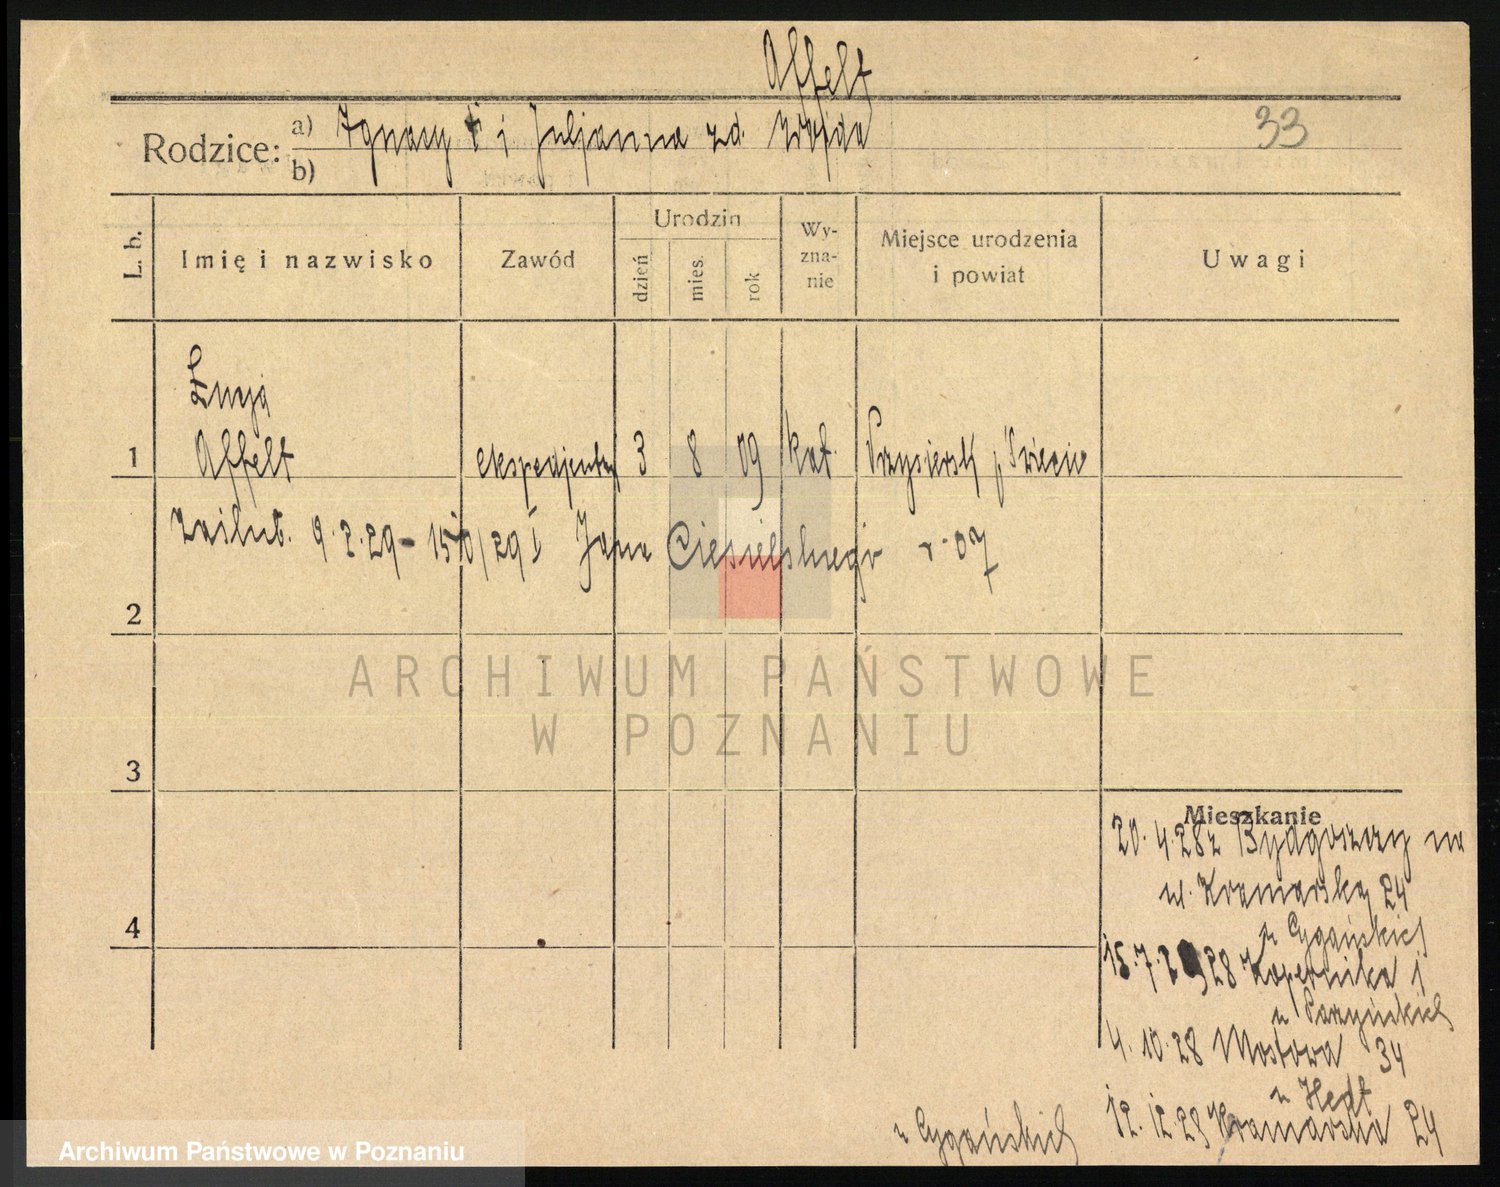 Affelt
Rodzice: a) Ignacy † i Juljanna zd. Wojda
b)
33
L. b. Imię i nazwisko Zawód Urodzin dzień mies. rok Wy-zna-nie Miejsce urodzenia i powiat Uwagi
Łucja
1 Affelt ekspedjentka 3 8 09 kat. Przysiersk p. Świecie
zaślub. 9.2.29 - 15 /29 Jana Ciesielskiego r. 07
2
ARCHIWUM PAŃSTWOWE
W POZNANIU
3
Mieszkanie
20.4.28 z Bydgoszczy na
ul. Kramarską 24
u Cygańskich
4
15.7.28 Kopernika 1
u Parzyńskich
4.10.28 Mostowa 34
u Hedt
12.12.28 Kramarska 24
u Cygańskich
Archiwum Państwowe w Poznaniu